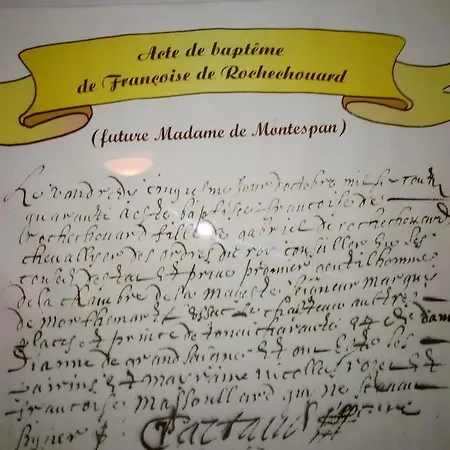 Acte de baptême
de Françoise de Rochechouard
(future Madame de Montespan)
Le vendredy cinquiesme jour d'octobre mil six cent
quarante a este baptisee francoise de
Rochechouard fille de gabriel de rochechouard
chevallyer des ordres du roy conseiller en ses
conseils destat Et privé premier gentilhomme
de la chambre de la majesté seigneur marquis
de morthemart Et
places Et prince de tonnaicharante Et de dame
Dianne de grandseigne Et ont este les
parins Et marraine nicollas rozet Et
francoise Massoullard qui ne scavent
signer